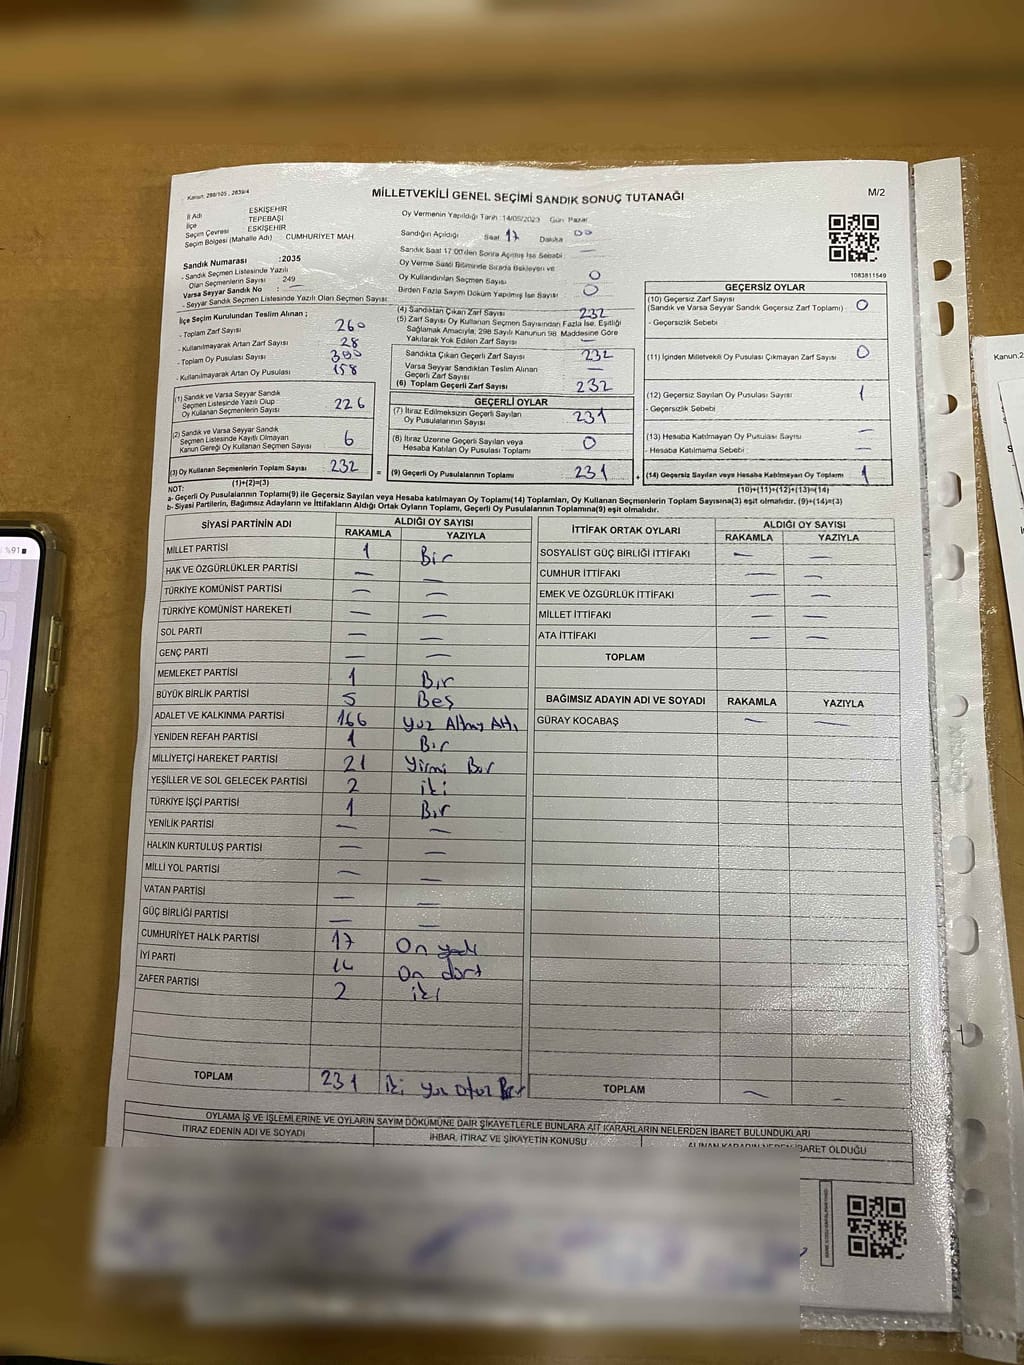 Kanun: 298/105 , 2839/4
MİLLETVEKİLİ GENEL SEÇİMİ SANDIK SONUÇ TUTANAĞI
M/2
İl Adı ESKİŞEHİR
İlçe TEPEBAŞI
Seçim Çevresi ESKİŞEHİR
Seçim Bölgesi (Mahalle Adı) CUMHURİYET MAH.
Oy Vermenin Yapıldığı Tarih :14/05/2023 Gün: Pazar
Sandığın Açıldığı Saat 17 Dakika 00
Sandık Saat 17:00'den Sonra Açılmış İse Sebebi : —
Oy Verme Saati Bitiminde Sırada Bekleyen ve
Oy Kullandırılan Seçmen Sayısı 0
Birden Fazla Sayım Döküm Yapılmış İse Sayısı 0
1083811549
Sandık Numarası :2035
- Sandık Seçmen Listesinde Yazılı
Olan Seçmenlerin Sayısı : 249
Varsa Seyyar Sandık No : —
- Seyyar Sandık Seçmen Listesinde Yazılı Olan Seçmen Sayısı:
İlçe Seçim Kurulundan Teslim Alınan ;
- Toplam Zarf Sayısı 260
- Kullanılmayarak Artan Zarf Sayısı 28
- Toplam Oy Pusulası Sayısı
- Kullanılmayarak Artan Oy Pusulası 158
(1) Sandık ve Varsa Seyyar Sandık
Seçmen Listesinde Yazılı Olup
Oy Kullanan Seçmenlerin Sayısı 226
(2) Sandık ve Varsa Seyyar Sandık
Seçmen Listesinde Kayıtlı Olmayan
Kanun Gereği Oy Kullanan Seçmen Sayısı 6
(3) Oy Kullanan Seçmenlerin Toplam Sayısı 232 =
(1)+(2)=(3)
(4) Sandıktan Çıkan Zarf Sayısı 232
(5) Zarf Sayısı Oy Kullanan Seçmen Sayısından Fazla İse, Eşitliği
Sağlamak Amacıyla, 298 Sayılı Kanunun 98. Maddesine Göre
Yakılarak Yok Edilen Zarf Sayısı —
Sandıkta Çıkan Geçerli Zarf Sayısı 232
Varsa Seyyar Sandıktan Teslim Alınan
Geçerli Zarf Sayısı —
(6) Toplam Geçerli Zarf Sayısı 232
GEÇERLİ OYLAR
(7) İtiraz Edilmeksizin Geçerli Sayılan
Oy Pusulalarının Sayısı 231
(8) İtiraz Üzerine Geçerli Sayılan veya
Hesaba Katılan Oy Pusulası Toplamı 0
(9) Geçerli Oy Pusulalarının Toplamı 231 +
GEÇERSİZ OYLAR
(10) Geçersiz Zarf Sayısı
(Sandık ve Varsa Seyyar Sandık Geçersiz Zarf Toplamı) : 0
- Geçersizlik Sebebi :
(11) İçinden Milletvekili Oy Pusulası Çıkmayan Zarf Sayısı 0
(12) Geçersiz Sayılan Oy Pusulası Sayısı 1
- Geçersizlik Sebebi :
(13) Hesaba Katılmayan Oy Pusulası Sayısı —
- Hesaba Katılmama Sebebi : —
(14) Geçersiz Sayılan veya Hesaba Katılmayan Oy Toplamı 1
(10)+(11)+(12)+(13)=(14)
NOT:
a- Geçerli Oy Pusulalarının Toplamı(9) ile Geçersiz Sayılan veya Hesaba katılmayan Oy Toplamı(14) Toplamları, Oy Kullanan Seçmenlerin Toplam Sayısına(3) eşit olmalıdır. (9)+(14)=(3)
b- Siyasi Partilerin, Bağımsız Adayların ve İttifakların Aldığı Ortak Oyların Toplamı, Geçerli Oy Pusulalarının Toplamına(9) eşit olmalıdır.
SİYASİ PARTİNİN ADI ALDIĞI OY SAYISI
RAKAMLA YAZIYLA
MİLLET PARTİSİ 1 Bir
HAK VE ÖZGÜRLÜKLER PARTİSİ — —
TÜRKİYE KOMÜNİST PARTİSİ — —
TÜRKİYE KOMÜNİST HAREKETİ — —
SOL PARTİ — —
GENÇ PARTİ — —
MEMLEKET PARTİSİ 1 Bir
BÜYÜK BİRLİK PARTİSİ 5 Beş
ADALET VE KALKINMA PARTİSİ 166 Yüz Altmış Altı
YENİDEN REFAH PARTİSİ 1 Bir
MİLLİYETÇİ HAREKET PARTİSİ 21 Yirmi Bir
YEŞİLLER VE SOL GELECEK PARTİSİ 2 iki
TÜRKİYE İŞÇİ PARTİSİ 1 Bir
YENİLİK PARTİSİ — —
HALKIN KURTULUŞ PARTİSİ — —
MİLLİ YOL PARTİSİ — —
VATAN PARTİSİ — —
GÜÇ BİRLİĞİ PARTİSİ — —
CUMHURİYET HALK PARTİSİ 17 On yedi
İYİ PARTİ 14 On dört
ZAFER PARTİSİ 2 iki
TOPLAM 231 iki yüz otuz Bir
İTTİFAK ORTAK OYLARI ALDIĞI OY SAYISI
RAKAMLA YAZIYLA
SOSYALİST GÜÇ BİRLİĞİ İTTİFAKI — —
CUMHUR İTTİFAKI — —
EMEK VE ÖZGÜRLÜK İTTİFAKI — —
MİLLET İTTİFAKI — —
ATA İTTİFAKI — —
TOPLAM
BAĞIMSIZ ADAYIN ADI VE SOYADI RAKAMLA YAZIYLA
GÜRAY KOCABAŞ — —
TOPLAM — —
OYLAMA İŞ VE İŞLEMLERİNE VE OYLARIN SAYIM DÖKÜMÜNE DAİR ŞİKAYETLERLE BUNLARA AİT KARARLARIN NELERDEN İBARET BULUNDUKLARI
İTİRAZ EDENİN ADI VE SOYADI İHBAR, İTİRAZ VE ŞİKAYETİN KONUSU ALINAN KARARIN NEDEN İBARET OLDUĞU
%91
Kanun,2